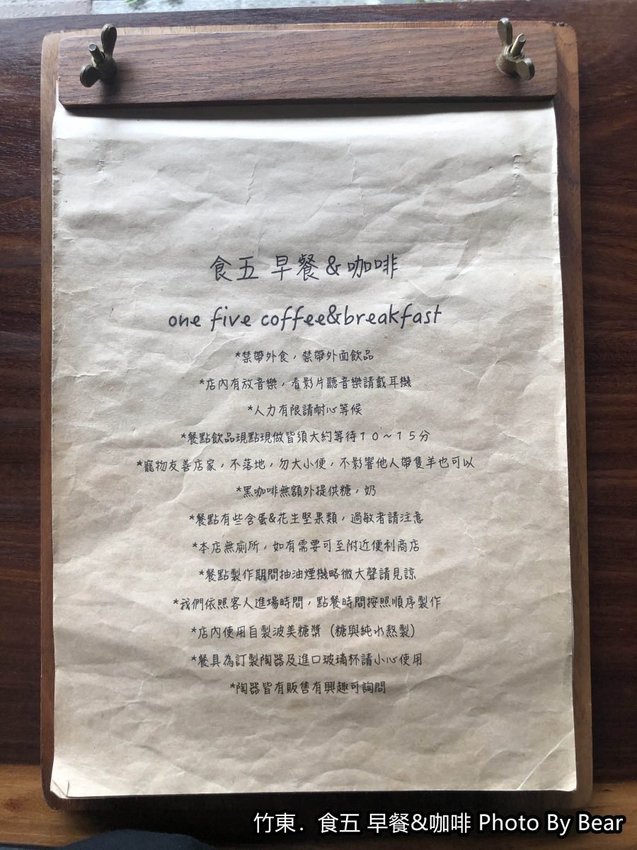 食五 早餐&咖啡
one five coffee&breakfast
*禁帶外食，禁帶外面飲品
*店內有放音樂，看影片聽音樂請戴耳機
*人力有限請耐心等候
*餐點飲品現點現做皆須大約等待10～15分
*寵物友善店家，不落地，勿大小便，不影響他人帶隻羊也可以
*黑咖啡無額外提供糖，奶
*餐點有些含蛋&花生堅果類，過敏者請注意
*本店無廁所，如有需要可至附近便利商店
*餐點製作期間抽油煙機略微大聲請見諒
*我們依照客人進場時間，點餐時間按照順序製作
*店內使用自製波美糖漿（糖與純水熬製）
*餐具為訂製陶器及進口玻璃杯請小心使用
*陶器皆有販售有興趣可詢問
竹東．食五 早餐&咖啡 Photo By Bear